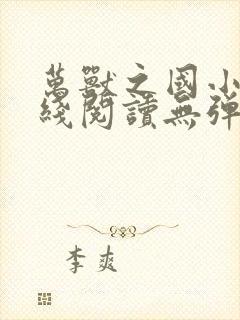 萬獸之國小
綫閱讀無彈
李爽